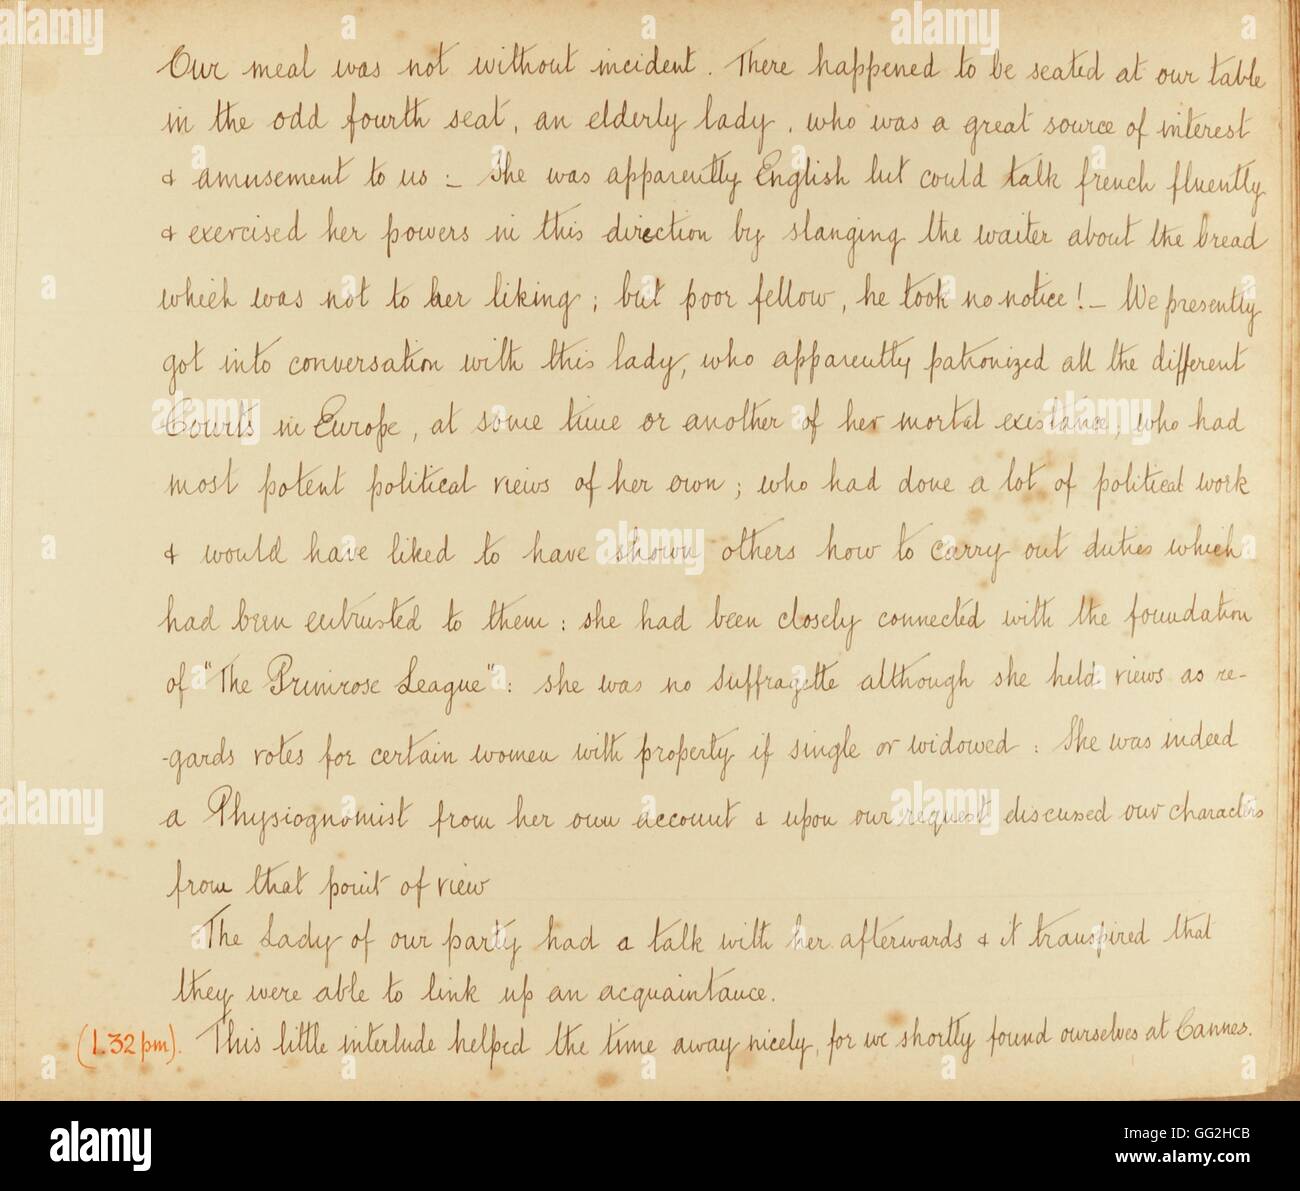 Our meal was not without incident. There happened to be seated at our table
in the odd fourth seat, an elderly lady, who was a great source of interest
& amusement to us :- She was apparently English but could talk french fluently
& exercised her powers in this direction by slanging the waiter about the bread
which was not to her liking; but poor fellow, he took no notice! - We presently
got into conversation with this lady, who apparently patronized all the different
Courts in Europe, at some time or another of her mortal existance; who had
most potent political views of her own; who had done a lot of political work
& would have liked to have shown others how to carry out duties which
had been entrusted to them : she had been closely connected with the foundation
of "The Primrose League" : she was no suffragette although she held views as re-
-gards votes for certain women with property if single or widowed : She was indeed
a Physiognomist from her own account & upon our request discussed our characters
from that point of view
The Lady of our party had a talk with her afterwards & it transpired that
they were able to link up an acquaintance.
(1.32 pm). This little interlude helped the time away nicely, for we shortly found ourselves at Cannes.
alamy
a
alamy
Image ID: GG2HCB
www.alamy.com